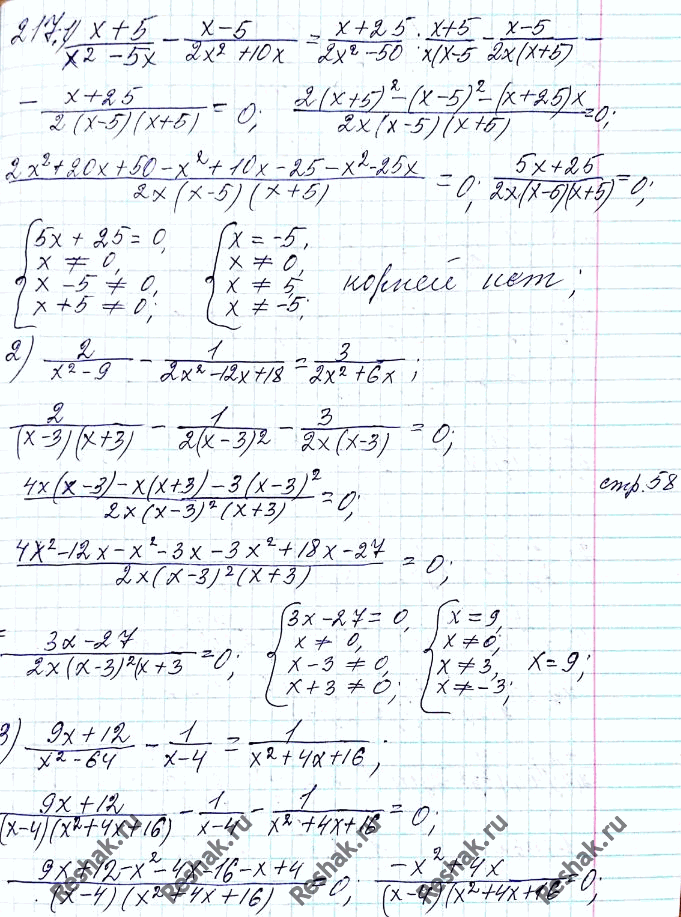 217.1) (x+5)/(x²-5x) - (x-5)/(2x²+10x) = (x+25)/(2x²-50) ; (x+5)/(x(x-5) - (x-5)/(2x(x+5)) -
- (x+25)/(2(x-5)(x+5)) = 0; (2(x+5)²-(x-5)²-(x+25)x)/(2x(x-5)(x+5)) = 0;
(2x²+20x+50-x²+10x-25-x²-25x)/(2x(x-5)(x+5)) = 0; (5x+25)/(2x(x-5)(x+5)) = 0;
{5x+25=0, {x=-5,
x≠0, x≠0,
x-5≠0, x≠5, корней нет;
x+5≠0; x≠-5;
2) 2/(x²-9) - 1/(2x²-12x+18) = 3/(2x²+6x);
2/((x-3)(x+3)) - 1/(2(x-3)²) - 3/(2x(x-3)) = 0;
(4x(x-3)-x(x+3)-3(x-3)²)/(2x(x-3)²(x+3)) = 0;
стр.58
(4x²-12x-x²-3x-3x²+18x-27)/(2x(x-3)²(x+3)) = 0;
= (3x-27)/(2x(x-3)²(x+3) = 0; {3x-27=0, {x=9,
x≠0, x≠0,
x-3≠0, x≠3, x=9;
x+3≠0; x≠-3;
3) (9x+12)/(x²-64) - 1/(x-4) = 1/(x²+4x+16);
(9x+12)/((x-4)(x²+4x+16)) - 1/(x-4) - 1/(x²+4x+16) = 0;
(9x+12-x²-4x-16-x+4)/((x-4)(x²+4x+16)) = 0; (-x²+4x)/((x-4)(x²+4x+16 = 0;
Reshak.ru Reshak.ru Reshak.ru Reshak.ru Reshak.ru